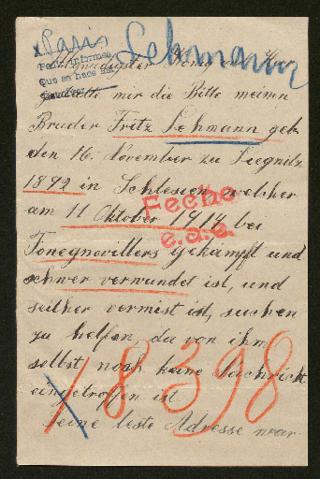 Paris
Lehmann
Pedir informes
Que se hace del
Gnädigster König
gestatte mir die Bitte meinen
Bruder Fritz Lehmann geb.
den 16. November zu Liegnitz
1892 in Schlesien, welcher
am 11 Oktober 1914 bei
Feche
e.a.a.
Fonequevillers gekämpft und
schwer verwundet ist, und
seither vermist ist, suchen
zu helfen, da von ihm
selbst noch keine Nachricht
eingetroffen ist
18398
Seine leste Adresse war